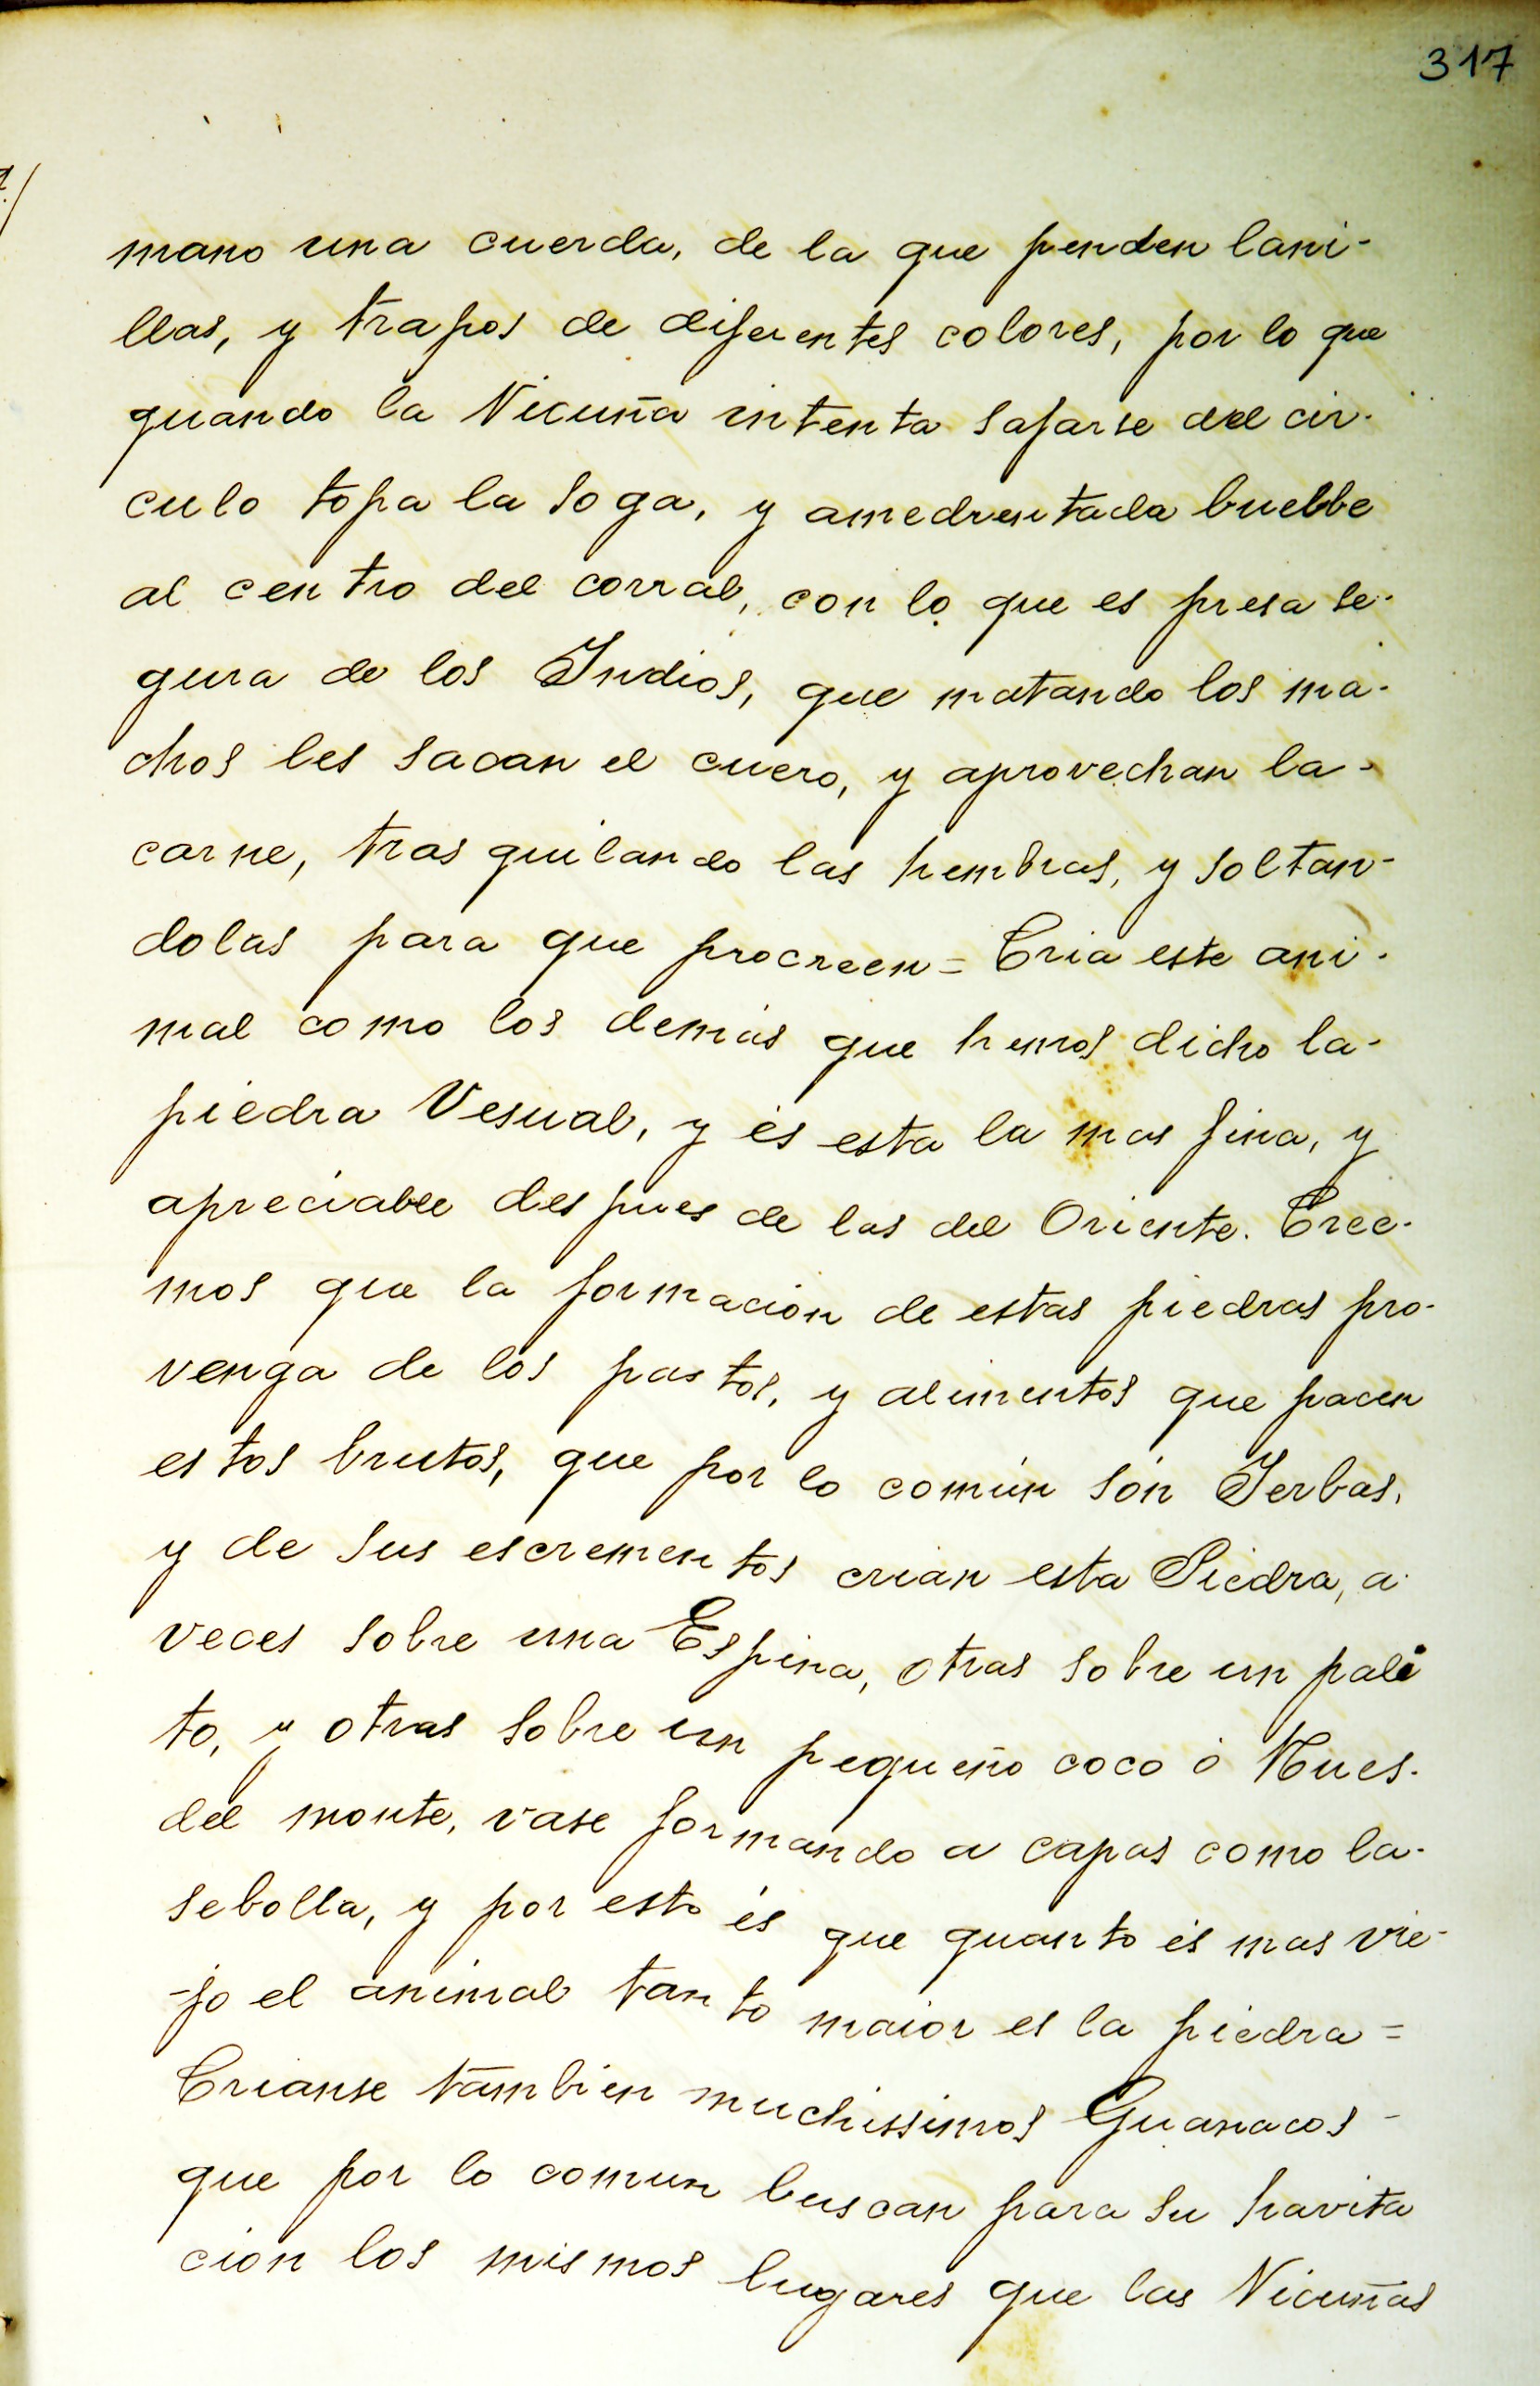 317
mano una cuerda, de la que penden lani-
llas, y trapos de diferentes colores, por lo que
quando la Vicuña intenta safarse del cir-
culo topa la soga, y amedrentada buelbe
al centro del corral, con lo que es presa se-
gura de los Indios, que matando los ma-
chos les sacan el cuero, y aprovechan la-
carne, trasquilando las hembras, y soltan-
dolas para que procreen= Cria este ani-
mal como los demás que hemos dicho la-
piedra Vesual, y és esta la mas fina, y
apreciable despues de las del Oriente. Cree-
mos que la formación de estas piedras pro-
venga de los pastos, y alimentos que pacen
estos brutos, que por lo común són Yerbas,
y de sus escrementos crian esta Piedra, a
veces sobre una Espina, otras sobre un pali
to, y otras sobre un pequeño coco ó Nues-
del monte, vase formando a capas como la-
sebolla, y por esto és que quanto és mas vie-
-jo el animal tanto maior es la piedra=
Crianse tambien muchissimos Guanacos-
que por lo comun buscan para su havita
cion los mismos lugares que las Vicuñas